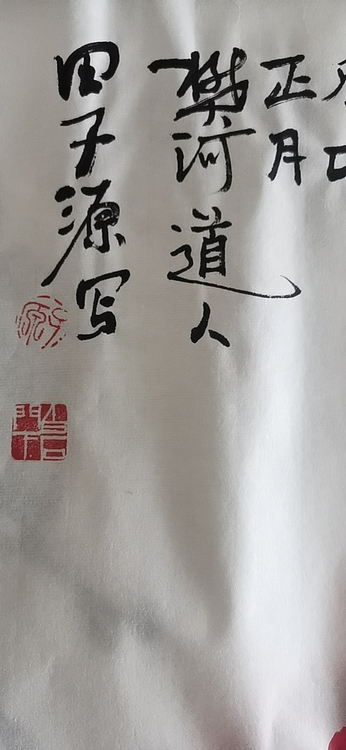 正月
樊河道人
田子源写